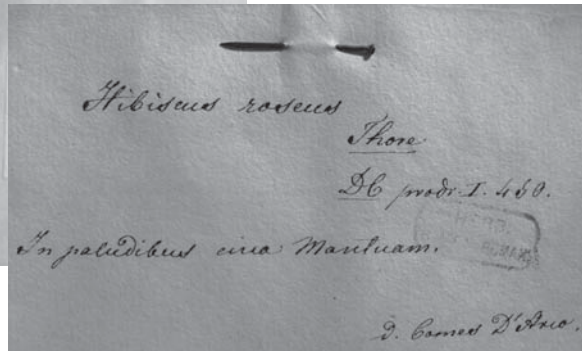 Hibiscus roseus
Thore
DC prodr. I. 450.
HERB.
In paludibus circa Mantuam.
d. Comes D'Arco.